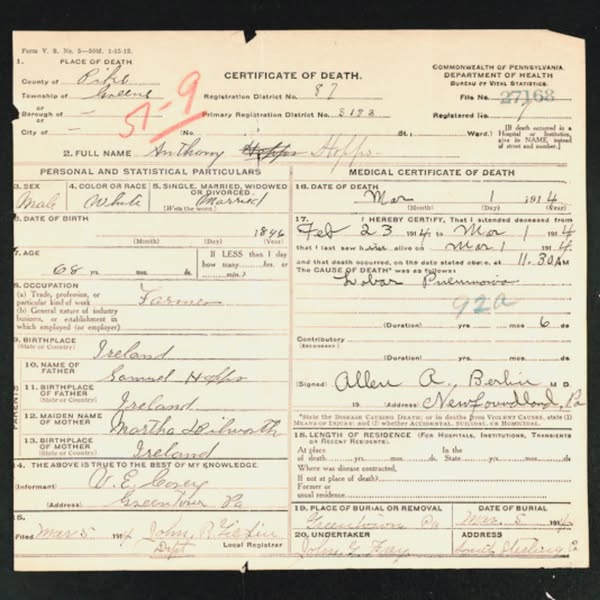 Form V. S. No. 5—50M. 1-15-13.
1. PLACE OF DEATH
County of Pike
Township of Greene
or
Borough of —
or
City of —
51-9
CERTIFICATE OF DEATH.
Registration District No. 87
Primary Registration District No. 3183
No. St.; Ward.)
COMMONWEALTH OF PENNSYLVANIA
DEPARTMENT OF HEALTH
BUREAU OF VITAL STATISTICS
File No. 27168
Registered No. 7
[If death occurred in a Hospital or Institution, give its NAME instead of street and number.]
2. FULL NAME Anthony Hopps Hopps
PERSONAL AND STATISTICAL PARTICULARS
3. SEX
Male
4. COLOR OR RACE
White
5. SINGLE, MARRIED, WIDOWED OR DIVORCED
(Write the word.)
Married
6. DATE OF BIRTH
1846
(Month) (Day) (Year)
7. AGE
68 yrs. mos. ds.
If LESS than 1 day
how many hrs. or
min.?
8. OCCUPATION
(a) Trade, profession, or
particular kind of work
Farmer
(b) General nature of industry
business, or establishment in
which employed (or employer)
9. BIRTHPLACE
(State or Country)
Ireland
PARENTS
10. NAME OF
FATHER
Samuel Hopps
11. BIRTHPLACE
OF FATHER
(State or Country)
Ireland
12. MAIDEN NAME
OF MOTHER
Martha Dilworth
13. BIRTHPLACE
OF MOTHER
(State or Country)
Ireland
14. THE ABOVE IS TRUE TO THE BEST OF MY KNOWLEDGE.
(Informant) V. E. Corey
(Address) Greentown Pa
15.
Filed Mar 5 1914 John
Dept Local Registrar
MEDICAL CERTIFICATE OF DEATH
16. DATE OF DEATH
Mar 1 1914
(Month) (Day) (Year)
17. I HEREBY CERTIFY, That I attended deceased from
Feb 23 1914 to Mar 1 1914
that I last saw him alive on Mar 1 1914
and that death occurred, on the date stated above, at 11.30 AM
The CAUSE OF DEATH* was as follows:
Lobar Pneumonia
92a
(Duration) yrs. mos. 6 ds
Contributory
(SECONDARY)
(Duration) yrs. mos. ds
(Signed) Allen A. Berlin M. D.
19 (Address) Newfoundland, Pa
*State the DISEASE CAUSING DEATH; or in deaths from VIOLENT CAUSES, state (1) MEANS OF INJURY; and (2) whether ACCIDENTAL, SUICIDAL, OR HOMICIDAL.
18. LENGTH OF RESIDENCE (FOR HOSPITALS, INSTITUTIONS, TRANSIENTS OR RECENT RESIDENTS.)
At place In the
of death yrs. mos. ds. State yrs. mos. ds.
Where was disease contracted,
If not at place of death?
Former or
usual residence
19. PLACE OF BURIAL OR REMOVAL
Greentown Pa
DATE OF BURIAL
Mar. 5 1914
20. UNDERTAKER
John G.
ADDRESS
South Sterling